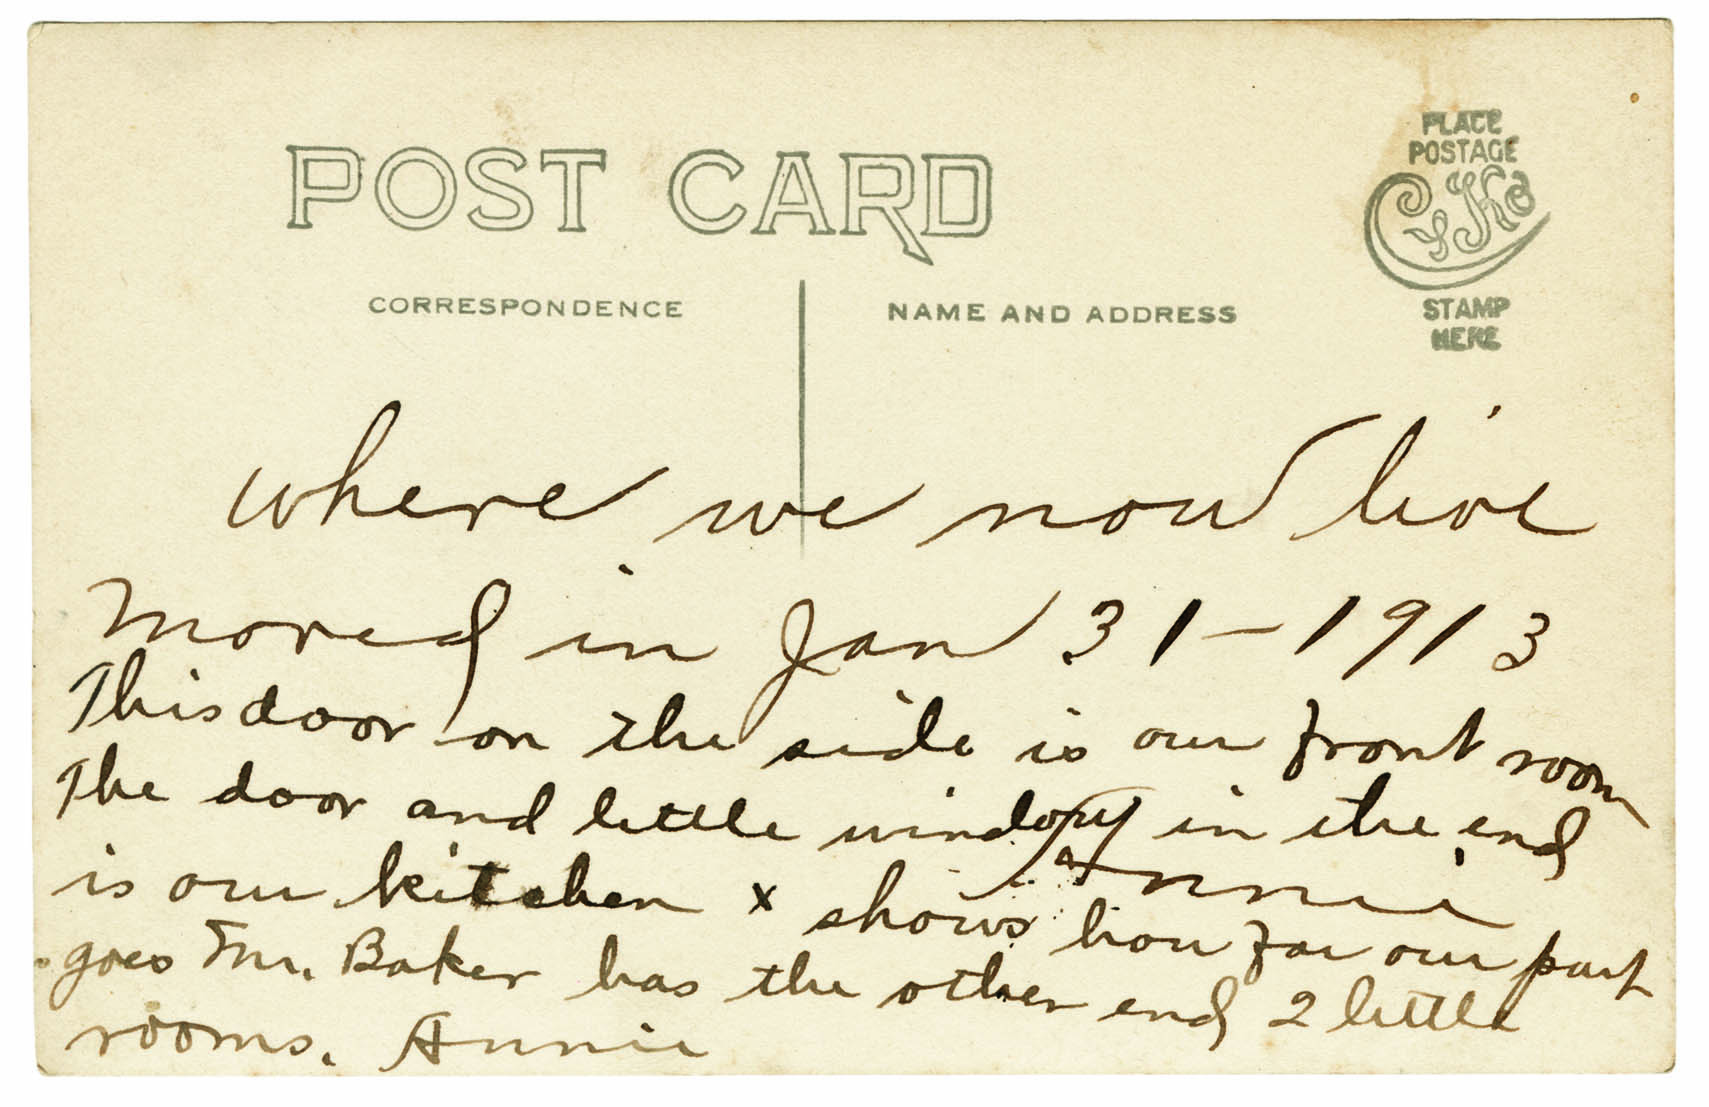 POST CARD
CORRESPONDENCE
NAME AND ADDRESS
PLACE
POSTAGE
CYKO
STAMP
HERE
where we now live
moved in Jan 31 – 1913
This door on the side is our front room
The door and little window in the end
Annie
is our kitchen x shows how far our part
goes Mr. Baker has the other end 2 little
rooms. Annie